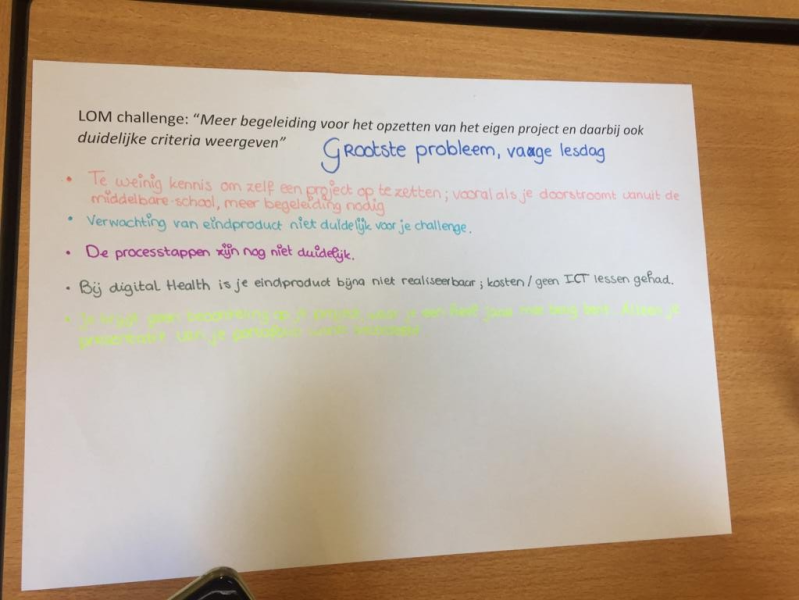 LOM challenge: “Meer begeleiding voor het opzetten van het eigen project en daarbij ook
duidelijke criteria weergeven”
Grootste probleem, vage lesdag
• Te weinig kennis om zelf een project op te zetten; vooral als je doorstroomt vanuit de
middelbare school, meer begeleiding nodig
• Verwachting van eindproduct niet duidelijk voor je challenge.
• De processtappen zijn nog niet duidelijk.
• Bij digital Health is je eindproduct bijna niet realiseerbaar; kosten/geen ICT lessen gehad.
• Je krijgt geen beoordeling je project waar je een half jaar mee bezig bent. Alleen je
presentatie van je